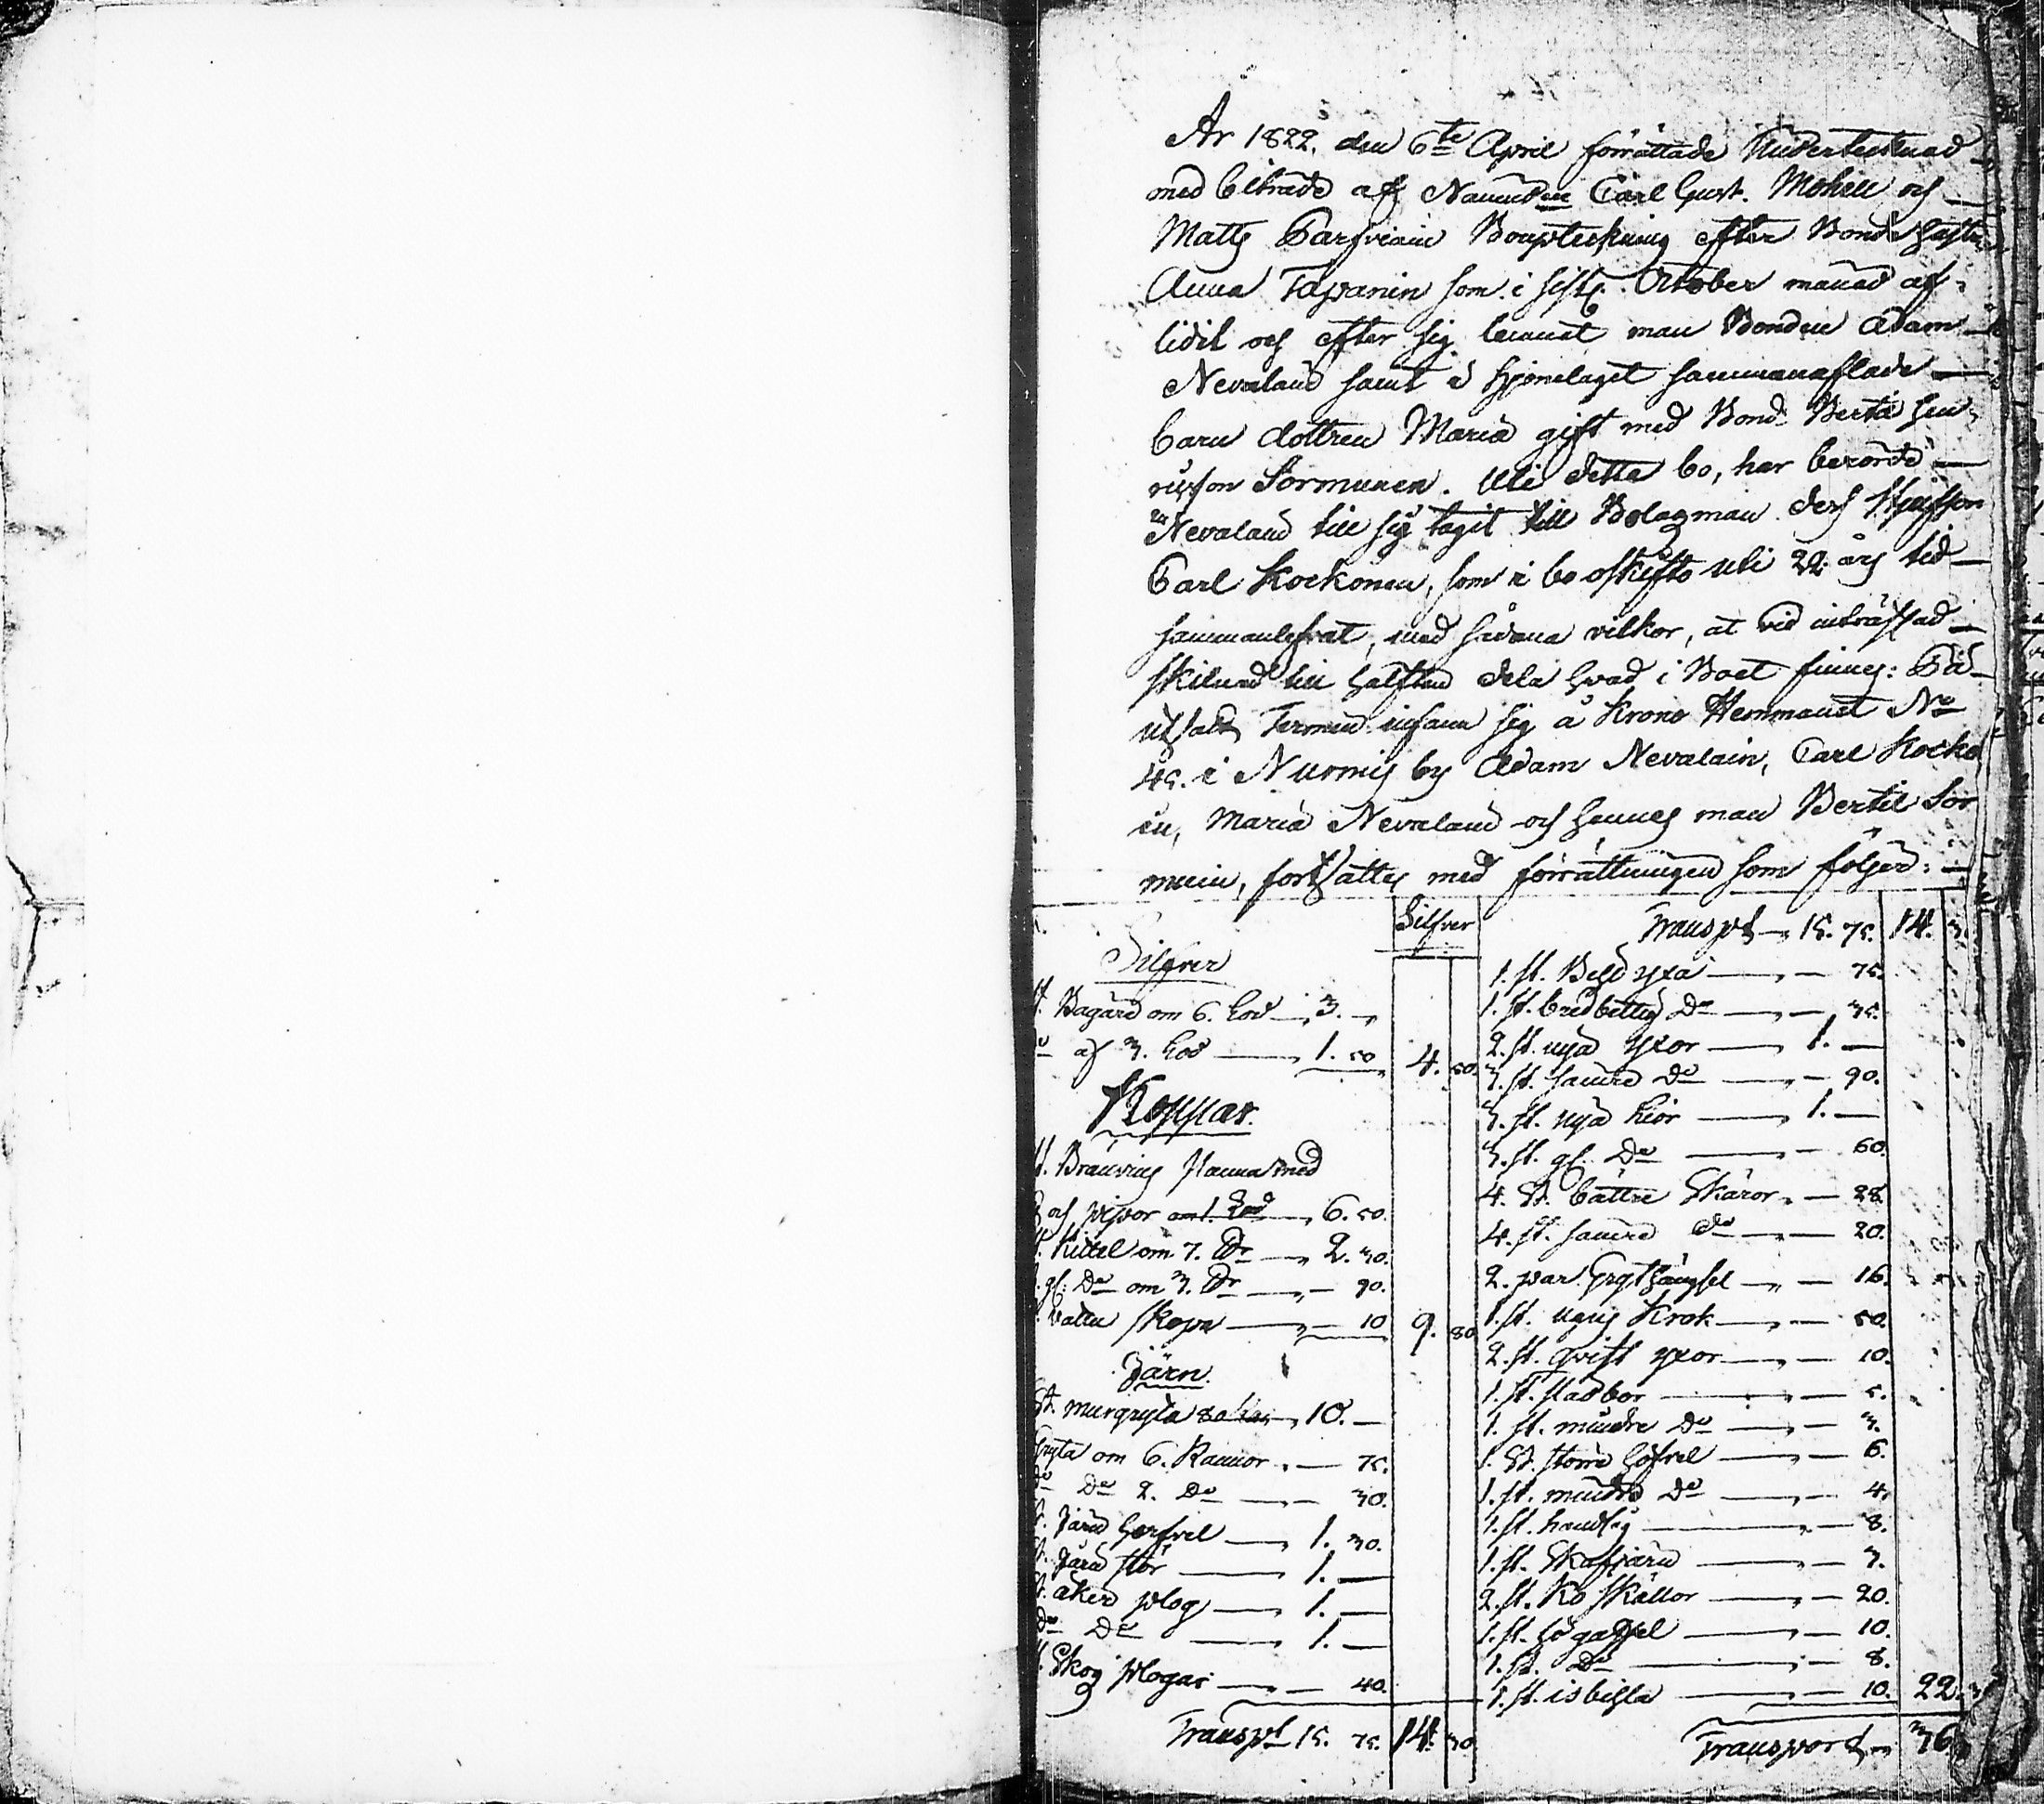 År 1822. den 6te April förrättade Undertecknad
med biträde af Nämnden Carl Gust. Mohell och
Matts Parfviain Bouptekning efter Bonde hustr
Anna Tapanin som i sistl. October månad af-
lidit och efter sig lemnat man Bonden Adam
Nevalain samt i hjonelaget sammanaflade
barn dottren Maria gift med Bond. Bertel Hen-
ricsson Sormunen. Uti detta bo, har berörde
Nevalain till sig tagit till Bolagman dess Stjufson
Carl Kockonen, som i bo oskifto uti 22 års tid
sammanlefvat, med sådana vilkor, at vid inträffad
skilnad till hälften dela hvad i Boet finnes: På
utsatt Termin infann sig å Krono Hemmanet No
45. i Nurmis by Adam Nevalain, Carl Kocko
en, Maria Nevalain och hennes man Bertil Sor
muin, fortsattes med förrättningen som följer:
Silfver
Silfver
Bägare om 6. Lod 3.
af 3. Lod 1. 50 4. 50.
Koppar.
Bränvins Panna med
och pipor 6. 50.
Kittel om 7. Do 2. 30.
gl. Do om 3. Do 90.
vatten skopa 10 9. 80
Järn.
St. murgryta 10.
Gryta om 6. Kannor 75.
Do Do 2. Do 30.
Järn Harfvel 1. 30.
Järn stör 1.
åker plog 1.
Do Do 1.
Skog plogar 40.
Transpt 15. 75. 14. 30.
Transpt 15. 75. 14. 3
1. st. Bild yxa 75.
1. st. bredbettig Do 35.
2. st. nya yxor 1.
3. st. sämre Do 90.
3. st. nya Lior 1.
3. st. gl. Do 60.
4. St. bättre Skäror 28.
4. st. sämre Do 20.
2. par Gryt hängsel 16.
1. st. ugns Krok 50.
2. st. qvist yxor 10.
1. st. stadbor 5.
1. st. mindre Do 3.
1. St. större höfvel 6.
1. st. mindre Do 4.
1. st. handsåg 8.
1. st. Skafjärn 3.
2. st. Ko skällor 20.
1. st. hö gaffel 10.
1. st. Do 8.
1. st. isbissla 10. 22.
Transport 36